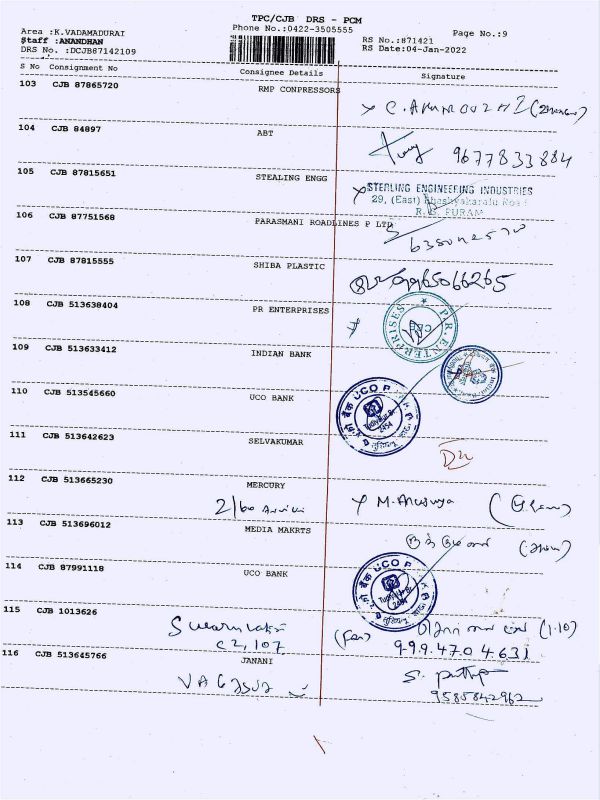 TPC/CJB DRS - PCM
Area :K.VADAMADURAI
Phone No.:0422-3505555
Page No.:9
Staff :ANANDHAN
RS No.:871421
DRS No. :DCJB87142109
RS Date:04-Jan-2022
S No Consignment No Consignee Details Signature
103 CJB 87865720 RMP CONPRESSORS
104 CJB 84897 ABT
9677833884
105 CJB 87815651 STEALING ENGG
STERLING ENGINEERING INDUSTRIES
29, (East) Bhashyakaralu Road
R.S. PURAM
106 CJB 87751568 PARASMANI ROADLINES P LTD
107 CJB 87815555 SHIBA PLASTIC
9965066265
108 CJB 513638404 PR ENTERPRISES
P.R. ENTERPRISES
109 CJB 513633412 INDIAN BANK
110 CJB 513545660 UCO BANK
UCO
2454
111 CJB 513642623 SELVAKUMAR
112 CJB 513665230 MERCURY
2/60
M. Anusuya
113 CJB 513696012 MEDIA MAKRTS
114 CJB 87991118 UCO BANK
UCO
2454
115 CJB 1013626
C2, 107
(1-10)
999470 4631
116 CJB 513645766 JANANI
9585842962